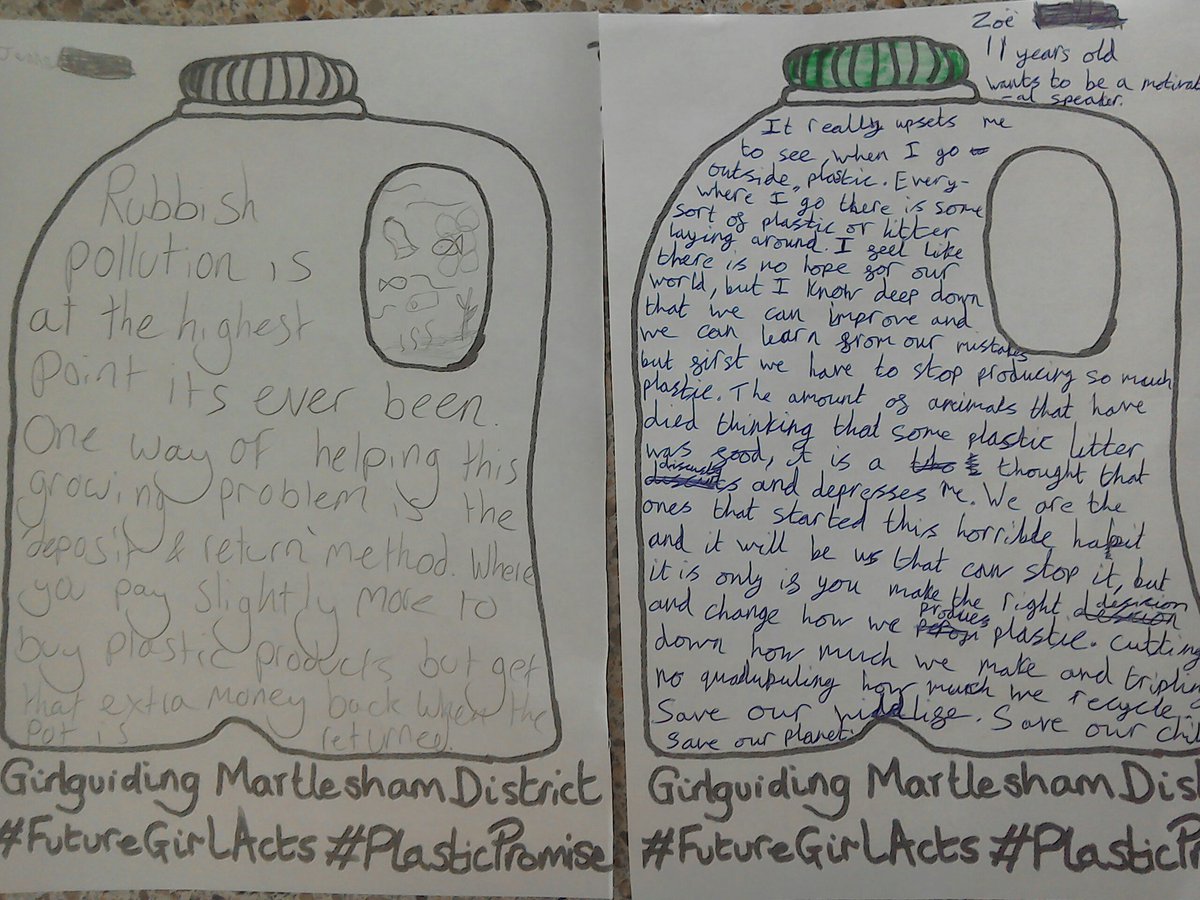 Rubbish
pollution is
at the highest
Point it's ever been.
One way of helping this
growing problem is the
"deposit & return" method. Where
you pay slightly more to
buy plastic products but get
that extra money back when the
pot is returned.
Girlguiding Martlesham District
#FutureGirlActs #PlasticPromise
Zoë
11 years old
wants to be a motivat
-al speaker.
It really upsets me
to see, when I go
outside, plastic. Every-
where I go there is some
sort of plastic or litter
laying around. I feel like
there is no hope for our
world, but I know deep down
that we can improve and
we can learn from our mistakes
but first we have to stop producing so much
plastic. The amount of animals that have
died thinking that some plastic litter
was good, it is a thought that
and depresses me. We are the
ones that started this horrible habit
and it will be us that can stop it, but
it is only is you make the right desicion
and change how we produes plastic. Cutting
down how much we make and triplin
no quadupuling how much we recycle.
Save our wildlife. Save our chil
Save our planet.
Girlguiding Martlesham Dis
#FutureGirlActs #PlasticPr